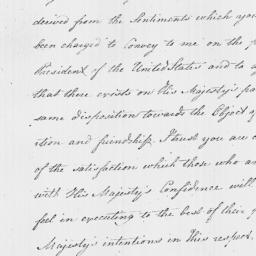 derived from the Sentiments which you
been charged to Convey to me on the
President of the United States and to
that there exists on His Majesty's pa
same disposition towards the Object
ition and friendship. I trust you are
of the satisfaction which those who a
with His Majesty's Confidence will
feel in executing to the best of their
Majesty's intentions in this respect.